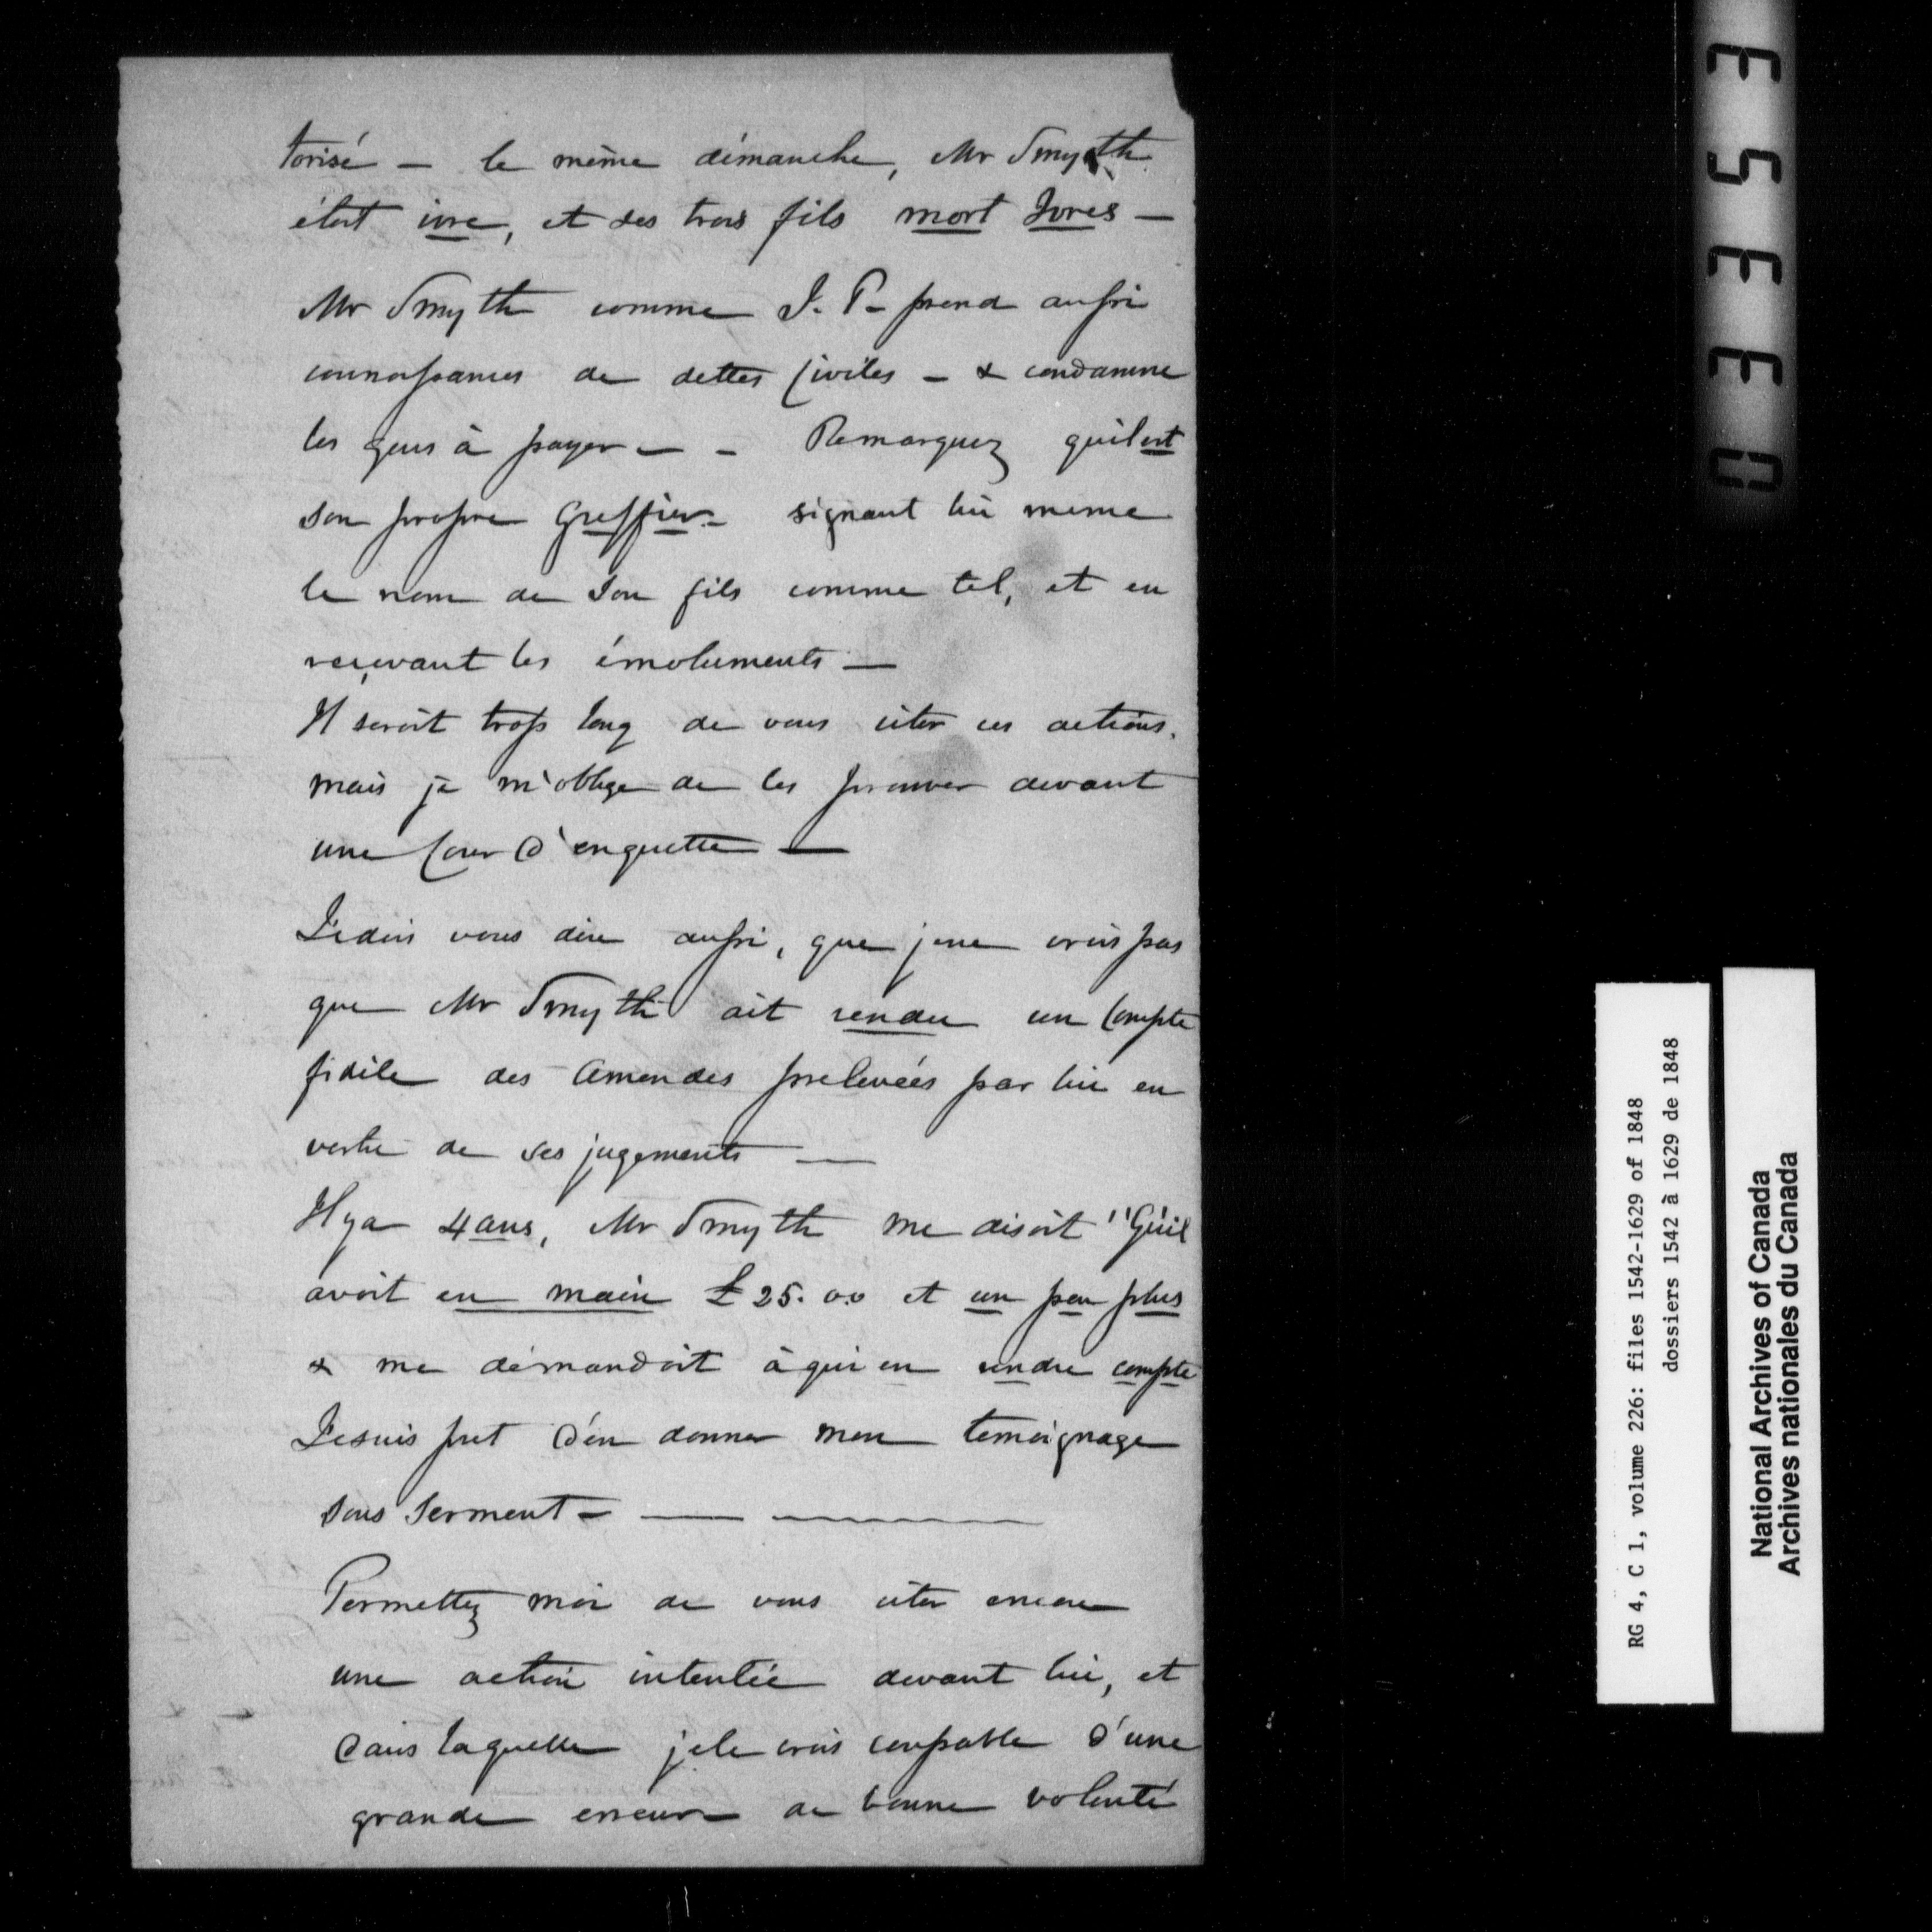 torisé — le même démanche, Mr Smyth
étoit ivre, et ses trois fils mort Ivres —
Mr Smyth comme J. P- prend aussi
connoissances de dettes Civiles — & condamne
les gens à payer — — Remarquez quil est
son propre Greffier — signant lui meme
le nom de son fils comme tel, et en
reçevant les émoluments —
Il seroit trop long de vous citer ces actions.
mais je m'oblige de les prouver devant
une Cour d'enquette —
Je dois vous dire aussi, que je ne crois pas
que Mr Smyth ait rendu un Compte
fidéle des Amendes prelevées par lui en
vertu de ses jugements —
Il ya 4 ans, Mr Smyth me disoit "Qu'il
avoit en main £25.0.0 et un peu plus
& me démandoit à qui en rendre compte
Je suis pret d'en donner mon temoignage
sous Serment — — —
Permettez moi de vous citer encore
une action intentée devant lui, et
dans laquelle je le crois coupable d'une
grande erreur de bonne volonté
03353
RG 4, C 1, volume 226: files 1542-1629 of 1848
dossiers 1542 à 1629 de 1848
National Archives of Canada
Archives nationales du Canada